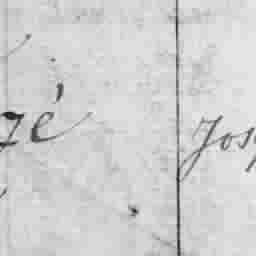 zé Jos